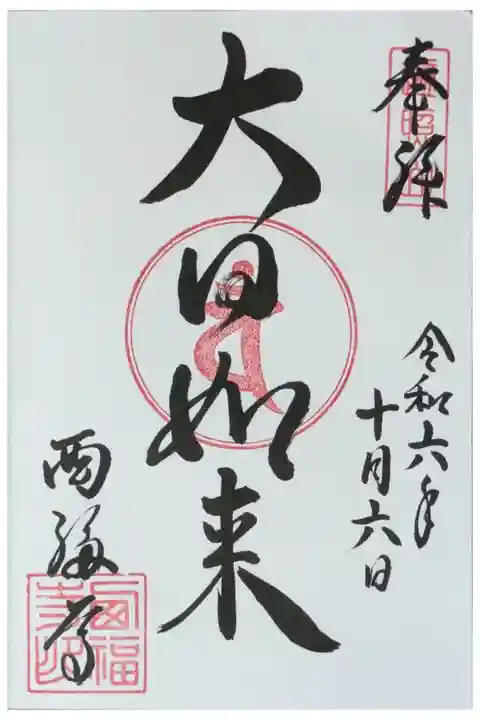 奉拝
令和六年
十月六日
大日如来
西福寺
西福寺印